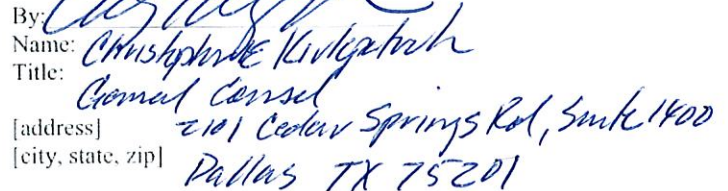 By:
Name: Christopher E Kirkpatrick
Title:
General Counsel
[address] 2101 Cedar Springs Rd, Suite 1400
[city, state, zip] Dallas TX 75201